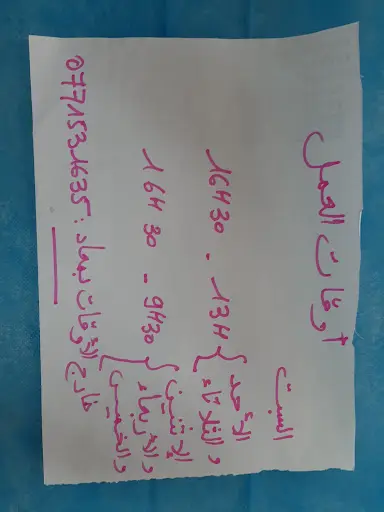 أوقات العمل
السبت
الأحد
و الثلاثاء } 13H - 16H30
الإثنين
و الأربعاء } 9H30 - 16H30
و الخميس
خارج الأوقات بهاد : 0771531635